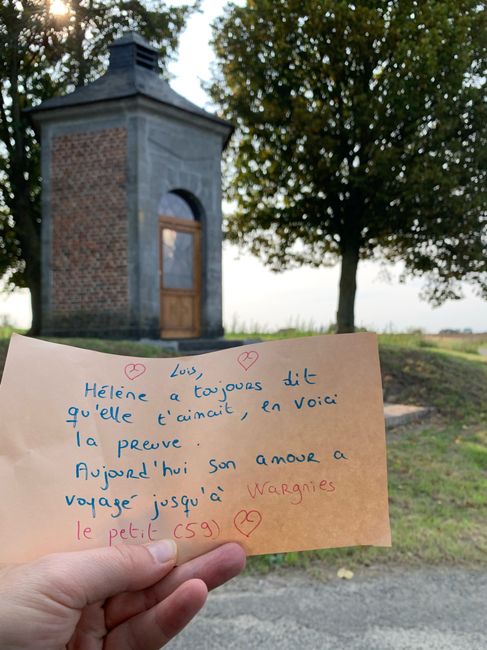 Luis,
Hélène a toujours dit
qu'elle t'aimait, en voici
la preuve.
Aujourd'hui son amour a
voyagé jusqu'à Wargnies
le petit (59)